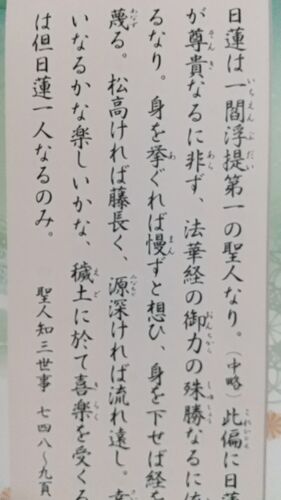 日蓮は一閻浮提第一の聖人なり。(中略)此偏に日蓮
が尊貴なるに非ず、法華経の御力の殊勝なるに依
るなり。身を挙ぐれば慢ずと想ひ、身を下せば経を
蔑る。松高ければ藤長く、源深ければ流れ遠し。幸
いなるかな楽しいかな、穢土に於て喜楽を受くる
は但日蓮一人なるのみ。
聖人知三世事 七四八〜九頁